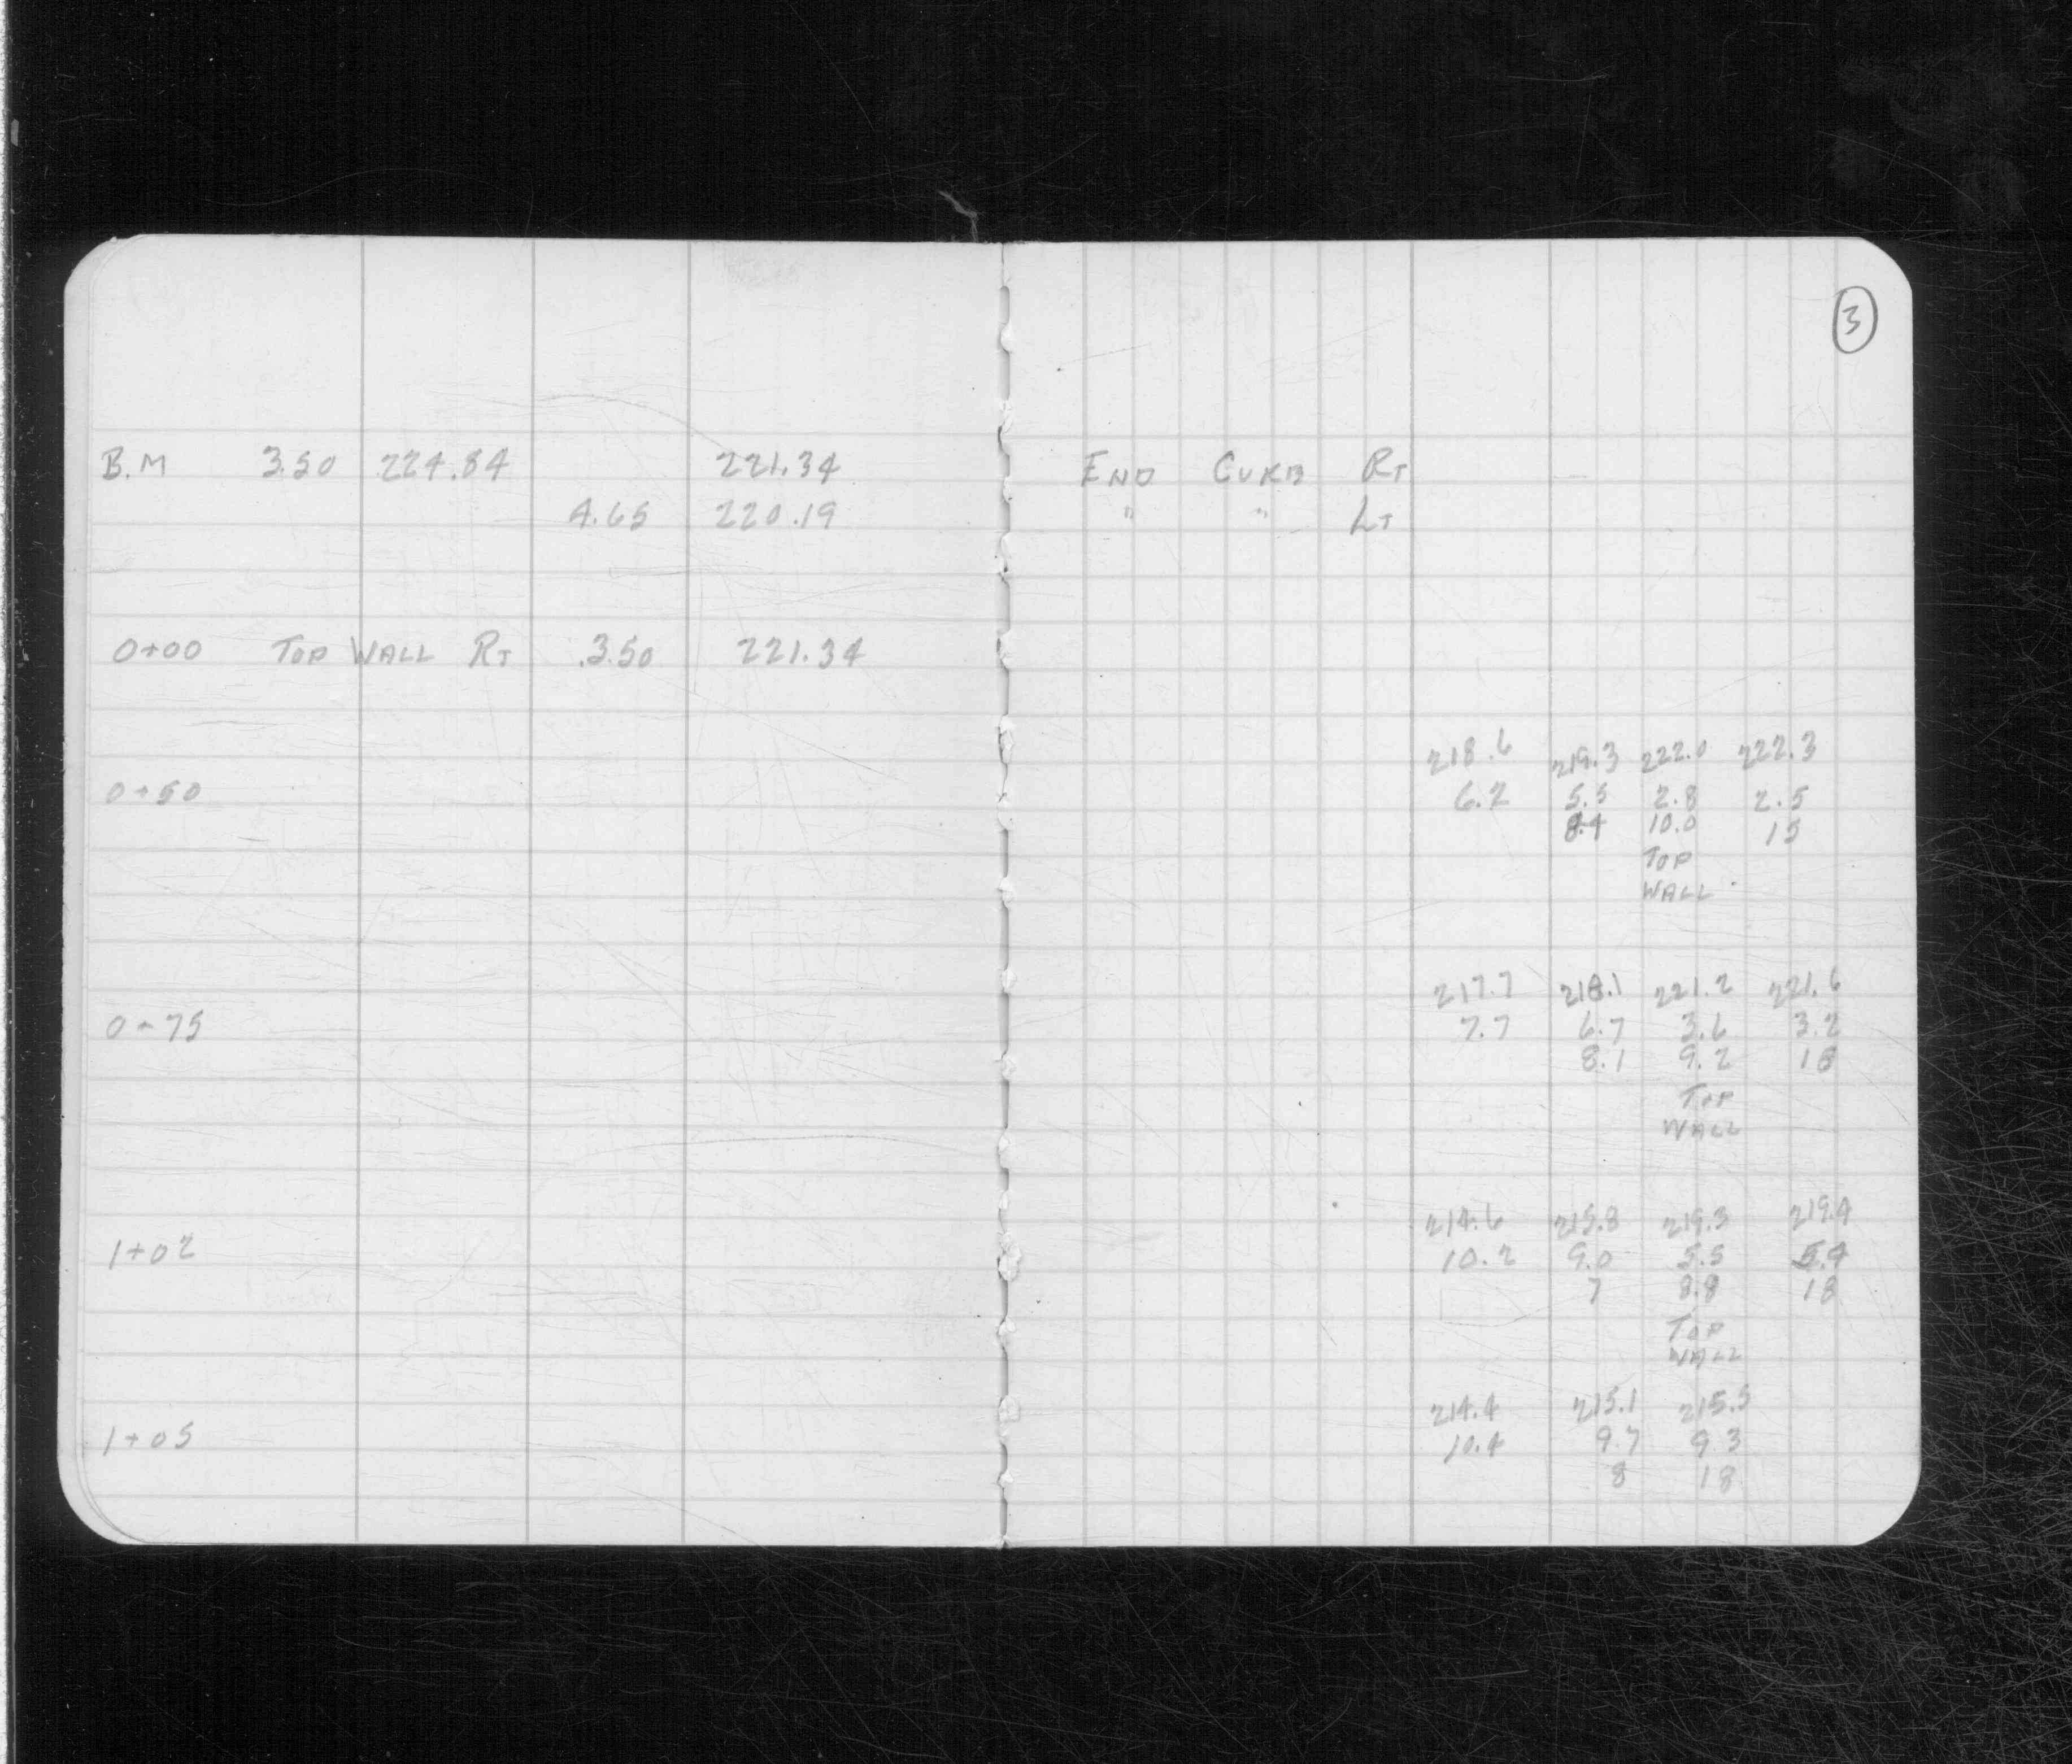 3
B.M 3.50 224.84 221.34 END CURB RT
4.65 220.19 " " LT
0+00 TOP WALL RT .3.50 221.34
218.6 219.3 222.0 222.3
0+50 6.2 5.5 2.8 2.5
8.4 10.0 15
TOP
WALL
217.7 218.1 221.2 221.6
0+75 7.7 6.7 3.6 3.2
8.1 9.2 18
TOP
WALL
214.6 215.8 219.3 219.4
1+02 10.2 9.0 5.5 5.4
7 8.8 18
TOP
WALL
214.4 215.1 215.5
1+05 10.4 9.7 9.3
8 18